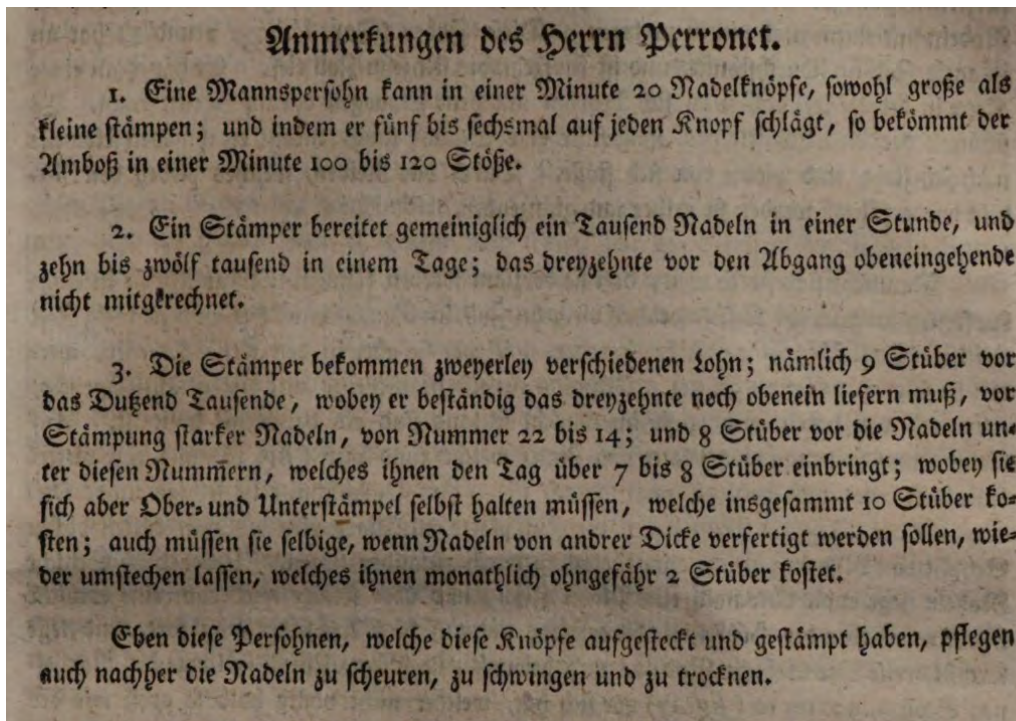 Anmerkungen des Herrn Perronet.
1. Eine Mannspersohn kann in einer Minute 20 Nadelknöpfe, sowohl große als
kleine stämpen; und indem er fünf bis sechsmal auf jeden Knopf schlägt, so bekömmt der
Amboß in einer Minute 100 bis 120 Stöße.
2. Ein Stämper bereitet gemeiniglich ein Tausend Nadeln in einer Stunde, und
zehn bis zwölf tausend in einem Tage; das dreyzehnte vor den Abgang obeneingehende
nicht mitgerechnet.
3. Die Stämper bekommen zweyerley verschiedenen Lohn; nämlich 9 Stüber vor
das Dutzend Tausende, wobey er beständig das dreyzehnte noch obenein liefern muß, vor
Stämpung starker Nadeln, von Nummer 22 bis 14; und 8 Stüber vor die Nadeln un-
ter diesen Num̄ern, welches ihnen den Tag über 7 bis 8 Stüber einbringt; wobey sie
sich aber Ober- und Unterstämpel selbst halten müssen, welche insgesammt 10 Stüber ko-
sten; auch müssen sie selbige, wenn Nadeln von andrer Dicke verfertigt werden sollen, wie-
der umstechen lassen, welches ihnen monathlich ohngefähr 2 Stüber kostet.
Eben diese Persohnen, welche diese Knöpfe aufgesteckt und gestämpt haben, pflegen
auch nachher die Nadeln zu scheuren, zu schwingen und zu trocknen.